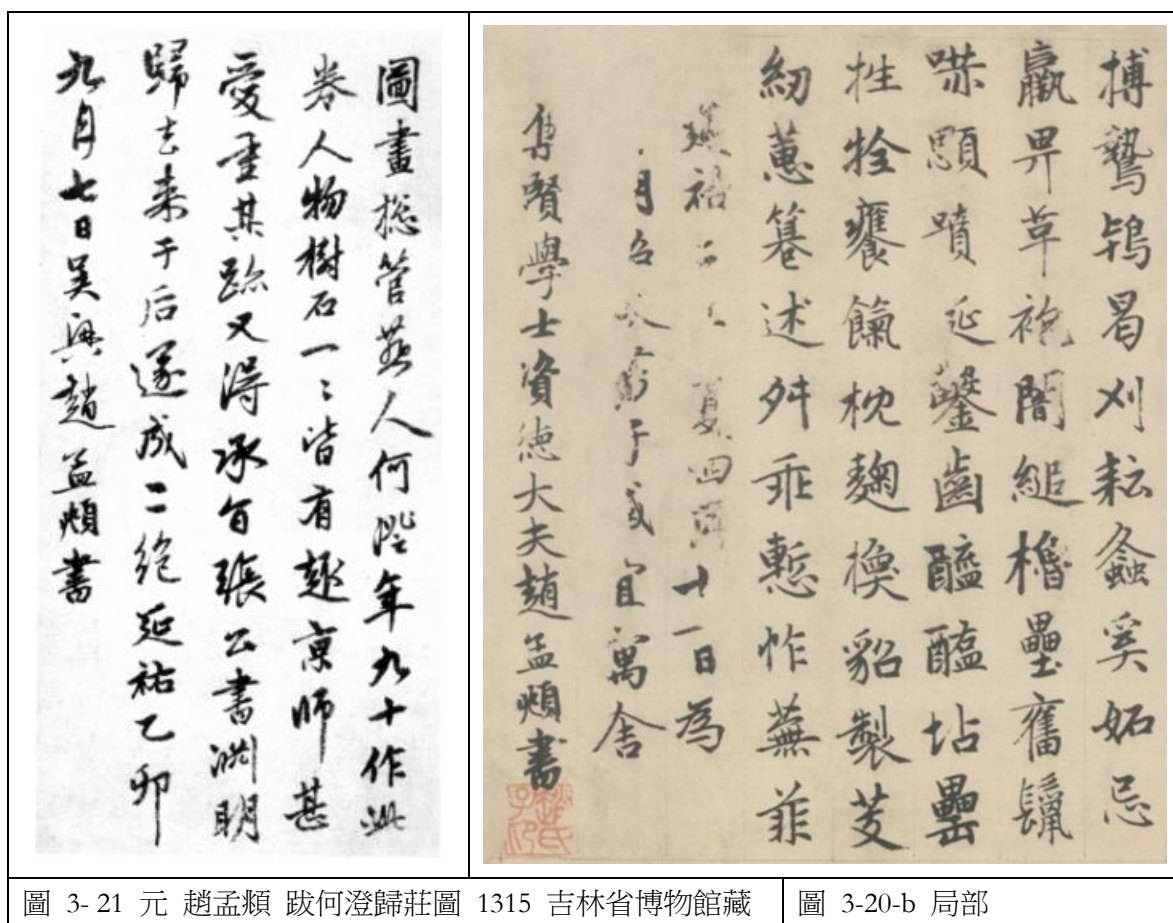 圖畫捴管燕人何澄年九十作此
卷人物樹石一々皆有趣京師甚
愛重其跡又得承旨張公書淵明
歸去来于后遂成二絕延祐乙卯
九月七日吳興趙孟頫書
搏鷙鴇曷刈耘螽奚妬忌
羸畀草袍闇縋櫓壘奮鬣
顋嘖延鑿齒醯醢坫罍
牲牷饔餼枕麹貂製芰
紉蕙述舛乖慙怍蕪菲
祐二夏四月十一日為
月于寓舍
集賢學士資德大夫趙孟頫書
趙氏子昂
圖 3-21 元 趙孟頫 跋何澄歸莊圖 1315 吉林省博物館藏
圖 3-20-b 局部